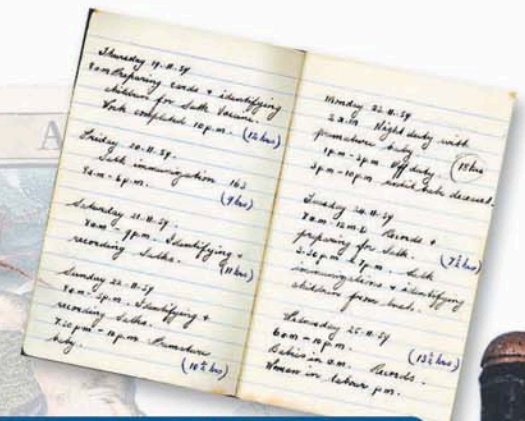 Thursday 19.11.59
8am Preparing cards + identifying
children for Salk Vaccine.
Work completed 10 p.m. (12 hrs)
Friday 20.11.59.
Salk immunization 163
8a.m - 6p.m. (9 hrs)
Saturday 21.11.59.
8am - 9pm. Identifying +
recording Salks. (11 hrs)
Sunday 22.11.59
8am - 5pm. Identifying +
recording Salks.
7.30pm - 10pm Premature
baby. (10½ hrs)
Monday 23.11.59
2a.m Night duty with
premature baby.
1pm - 3pm Off duty. (18 hrs
3pm - 10pm until baby deceased.
Tuesday 24.11.59
8am - 12 m.d. Records +
preparing for Salk. (7½ hrs)
2.30pm - 5pm. Salk
immunizations + identifying
children from bush.
Wednesday 25.11.59
6am - 10pm. (13½ hrs)
Babies in a.m. Records.
Woman in labour pm.
A